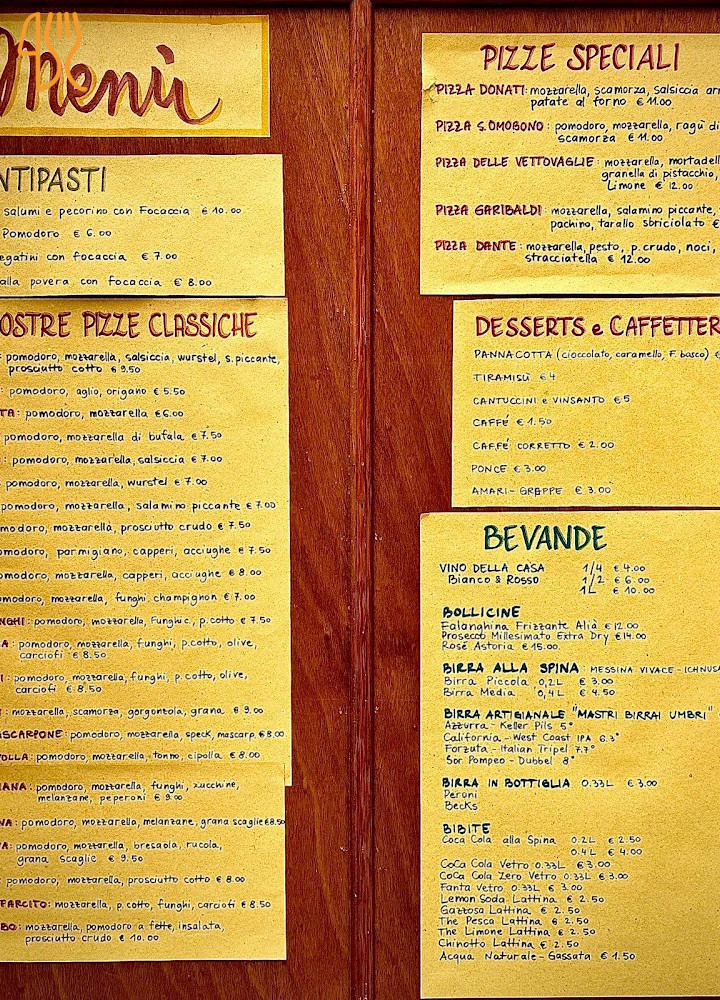 Menù
NTIPASTI
salumi e pecorino con Focaccia € 10.00
Pomodoro € 6.00
egatini con focaccia € 7.00
alla povera con focaccia € 8.00
OSTRE PIZZE CLASSICHE
: pomodoro, mozzarella, salsiccia, wurstel, s.piccante,
prosciutto cotto € 9.50
: pomodoro, aglio, origano € 5.50
TA: pomodoro, mozzarella € 6.00
pomodoro, mozzarella di bufala € 7.50
: pomodoro, mozzarella, salsiccia € 7.00
pomodoro, mozzarella, wurstel € 7.00
pomodoro, mozzarella, salamino piccante € 7.00
omodoro, mozzarella, prosciutto crudo € 7.50
omodoro, parmigiano, capperi, acciughe € 7.50
omodoro, mozzarella, capperi, acciughe € 8.00
omodoro, mozzarella, funghi, champignon € 7.00
NGHI: pomodoro, mozzarella, Funghi, p.cotto € 7.50
A: pomodoro, mozzarella, funghi, p.cotto, olive,
carciofi € 8.50
I: pomodoro, mozzarella, funghi, p.cotto, olive,
carciofi € 8.50
: mozzarella, scamorza, gorgonzola, grana € 9.00
ASCARPONE: pomodoro, mozzarella, speck, mascarp. € 8.00
OLLA: pomodoro, mozzarella, tonno, cipolla € 8.00
IANA: pomodoro, mozzarella, funghi, zucchine,
melanzane, peperoni € 9.00
VA: pomodoro, mozzarella, melanzane, grana scaglie €8.50
A: pomodoro, mozzarella, bresaola, rucola,
grana scaglie € 9.50
: pomodoro, mozzarella, prosciutto cotto € 8.00
FARCITO: mozzarella, p.cotto, funghi, carciofi € 8.50
BO: mozzarella, pomodoro a fette, insalata,
prosciutto crudo € 10.00
PIZZE SPECIALI
PIZZA DONATI: mozzarella, scamorza, salsiccia
patate al forno € 11.00
PIZZA S.OMOBONO: pomodoro, mozzarella, ragù di
scamorza € 11.00
PIZZA DELLE VETTOVAGLIE: mozzarella, mortadell
granella di pistacchio,
Limone € 12.00
PIZZA GARIBALDI: mozzarella, salamino piccante,
pachino, tarallo sbriciolato €
PIZZA DANTE: mozzarella, pesto, p.crudo, noci,
stracciatella € 12.00
DESSERTS e CAFFETTER
PANNACOTTA (cioccolato, caramello, F. bosco) €
TIRAMISÙ € 4
CANTUCCINI e VINSANTO € 5
CAFFÈ € 1.50
CAFFÈ CORRETTO € 2.00
PONCE € 3.00
AMARI - GRAPPE € 3.00
BEVANDE
VINO DELLA CASA 1/4 € 4.00
Bianco & Rosso 1/2 € 6.00
1L € 10.00
BOLLICINE
Falanghina Frizzante Alià € 12.00
Prosecco Millesimato Extra Dry € 14.00
Rosé Astoria € 15.00
BIRRA ALLA SPINA: MESSINA VIVACE - ICHNUSA
Birra Piccola 0,2L € 3.00
Birra Media 0,4L € 4.50
BIRRA ARTIGIANALE "MASTRI BIRRAI UMBRI"
Azzurra - Keller Pils 5°
California - West Coast IPA 6.3°
Forzuta - Italian Tripel 7.7°
Sor Pompeo - Dubbel 8°
BIRRA IN BOTTIGLIA 0.33L € 3.00
Peroni
Becks
BIBITE
Coca Cola alla Spina 0.2L € 2.50
0.4L € 4.00
Coca Cola Vetro 0.33L € 3.00
Coca Cola Zero Vetro 0.33L € 3.00
Fanta Vetro 0.33L € 3.00
Lemon Soda Lattina € 2.50
Gazzosa Lattina € 2.50
The Pesca Lattina € 2.50
The Limone Lattina € 2.50
Chinotto Lattina € 2.50
Acqua Naturale - Gassata € 1.50